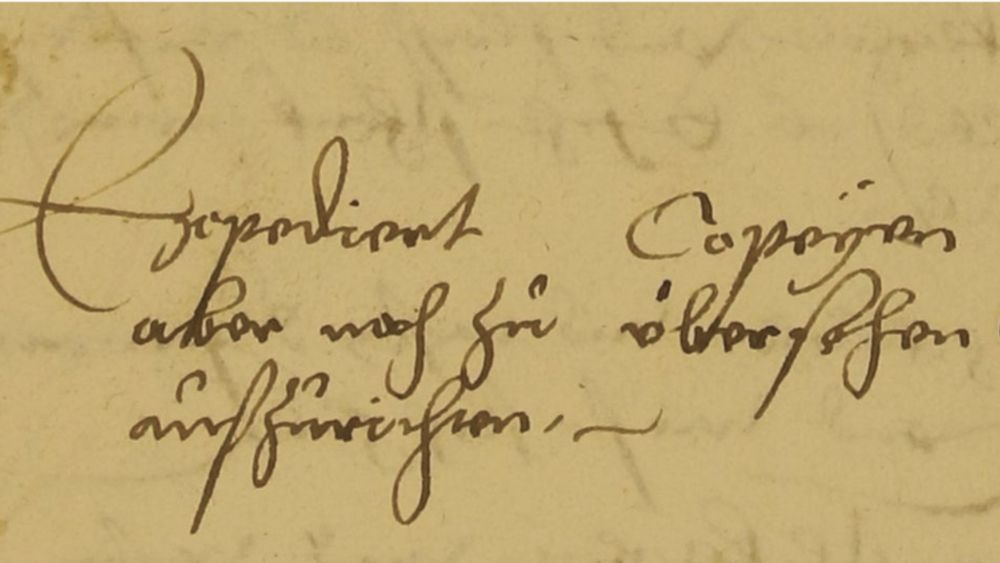 Expediert Copeyen
aber noch zu übersehen
auszurichten.